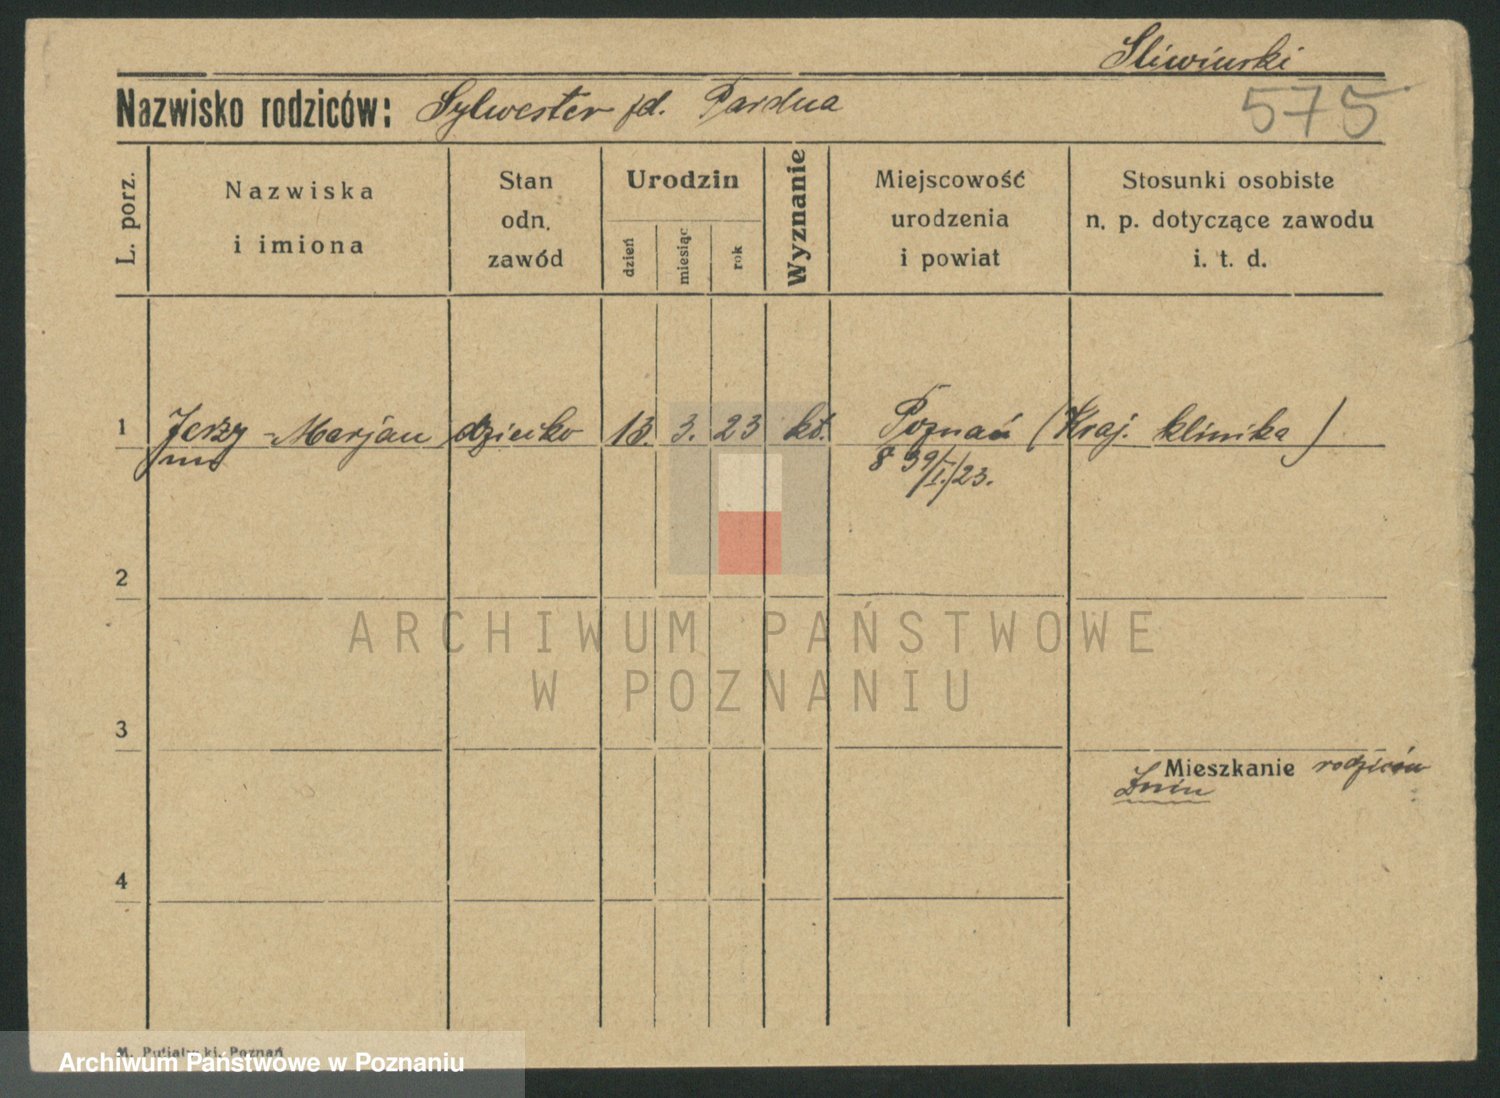 Sliwinski
Nazwisko rodziców: Sylwester fd. Pardua
575
L. porz.
Nazwiska
i imiona
Stan
odn.
zawód
Urodzin
dzień
miesiąc
rok
Wyznanie
Miejscowość
urodzenia
i powiat
Stosunki osobiste
n. p. dotyczące zawodu
i. t. d.
1 Jerzy - Marjan dziecko 13. 3. 23 kt. Poznań (Kraj. klinika)
39/I./23.
2
ARCHIWUM PAŃSTWOWE
W POZNANIU
3
Mieszkanie rodziców
Żnin
4
M. Putiatycki, Poznań
Archiwum Państwowe w Poznaniu